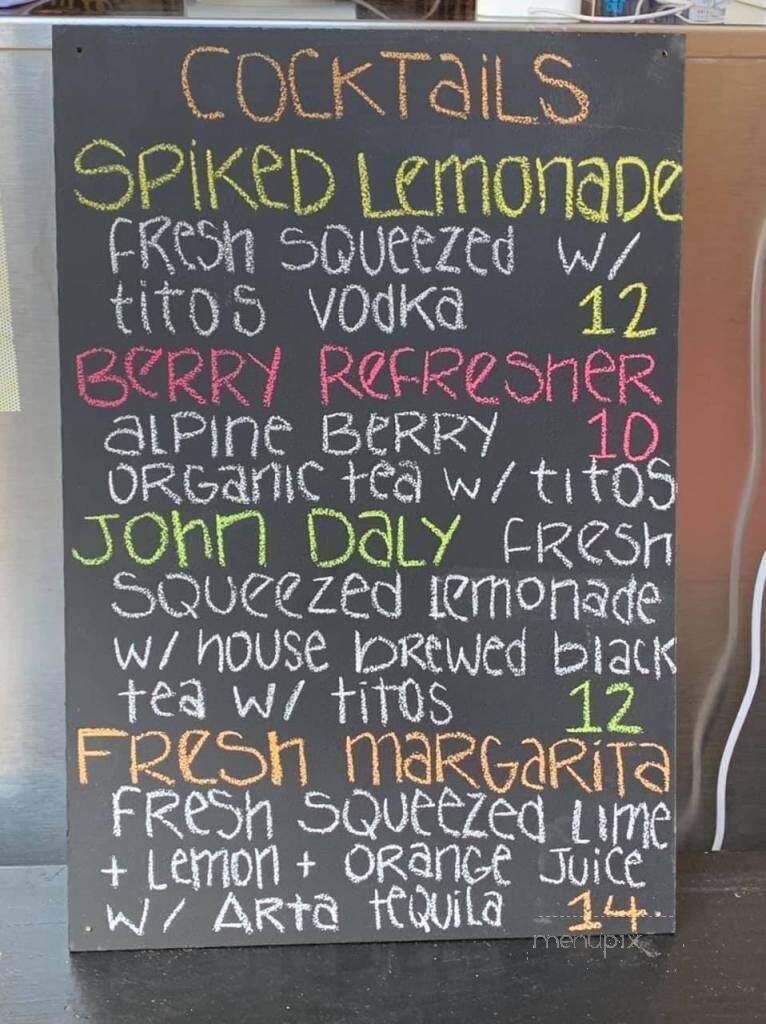 COCKTaiLS
SPiKED LemonaDe
FResh SQueezed w/
tito's vodka 12
BeRRY ReFResheR
aLPine BeRRY 10
ORGanic tea w/ titos
John DaLy FResh
SQueezed Lemonade
w/ house bRewed black
tea w/ titos 12
FResh maRGaRita
FResh SQueezed Lime
+ Lemon + ORange Juice
w/ ARta teQuiLa 14.
menupix